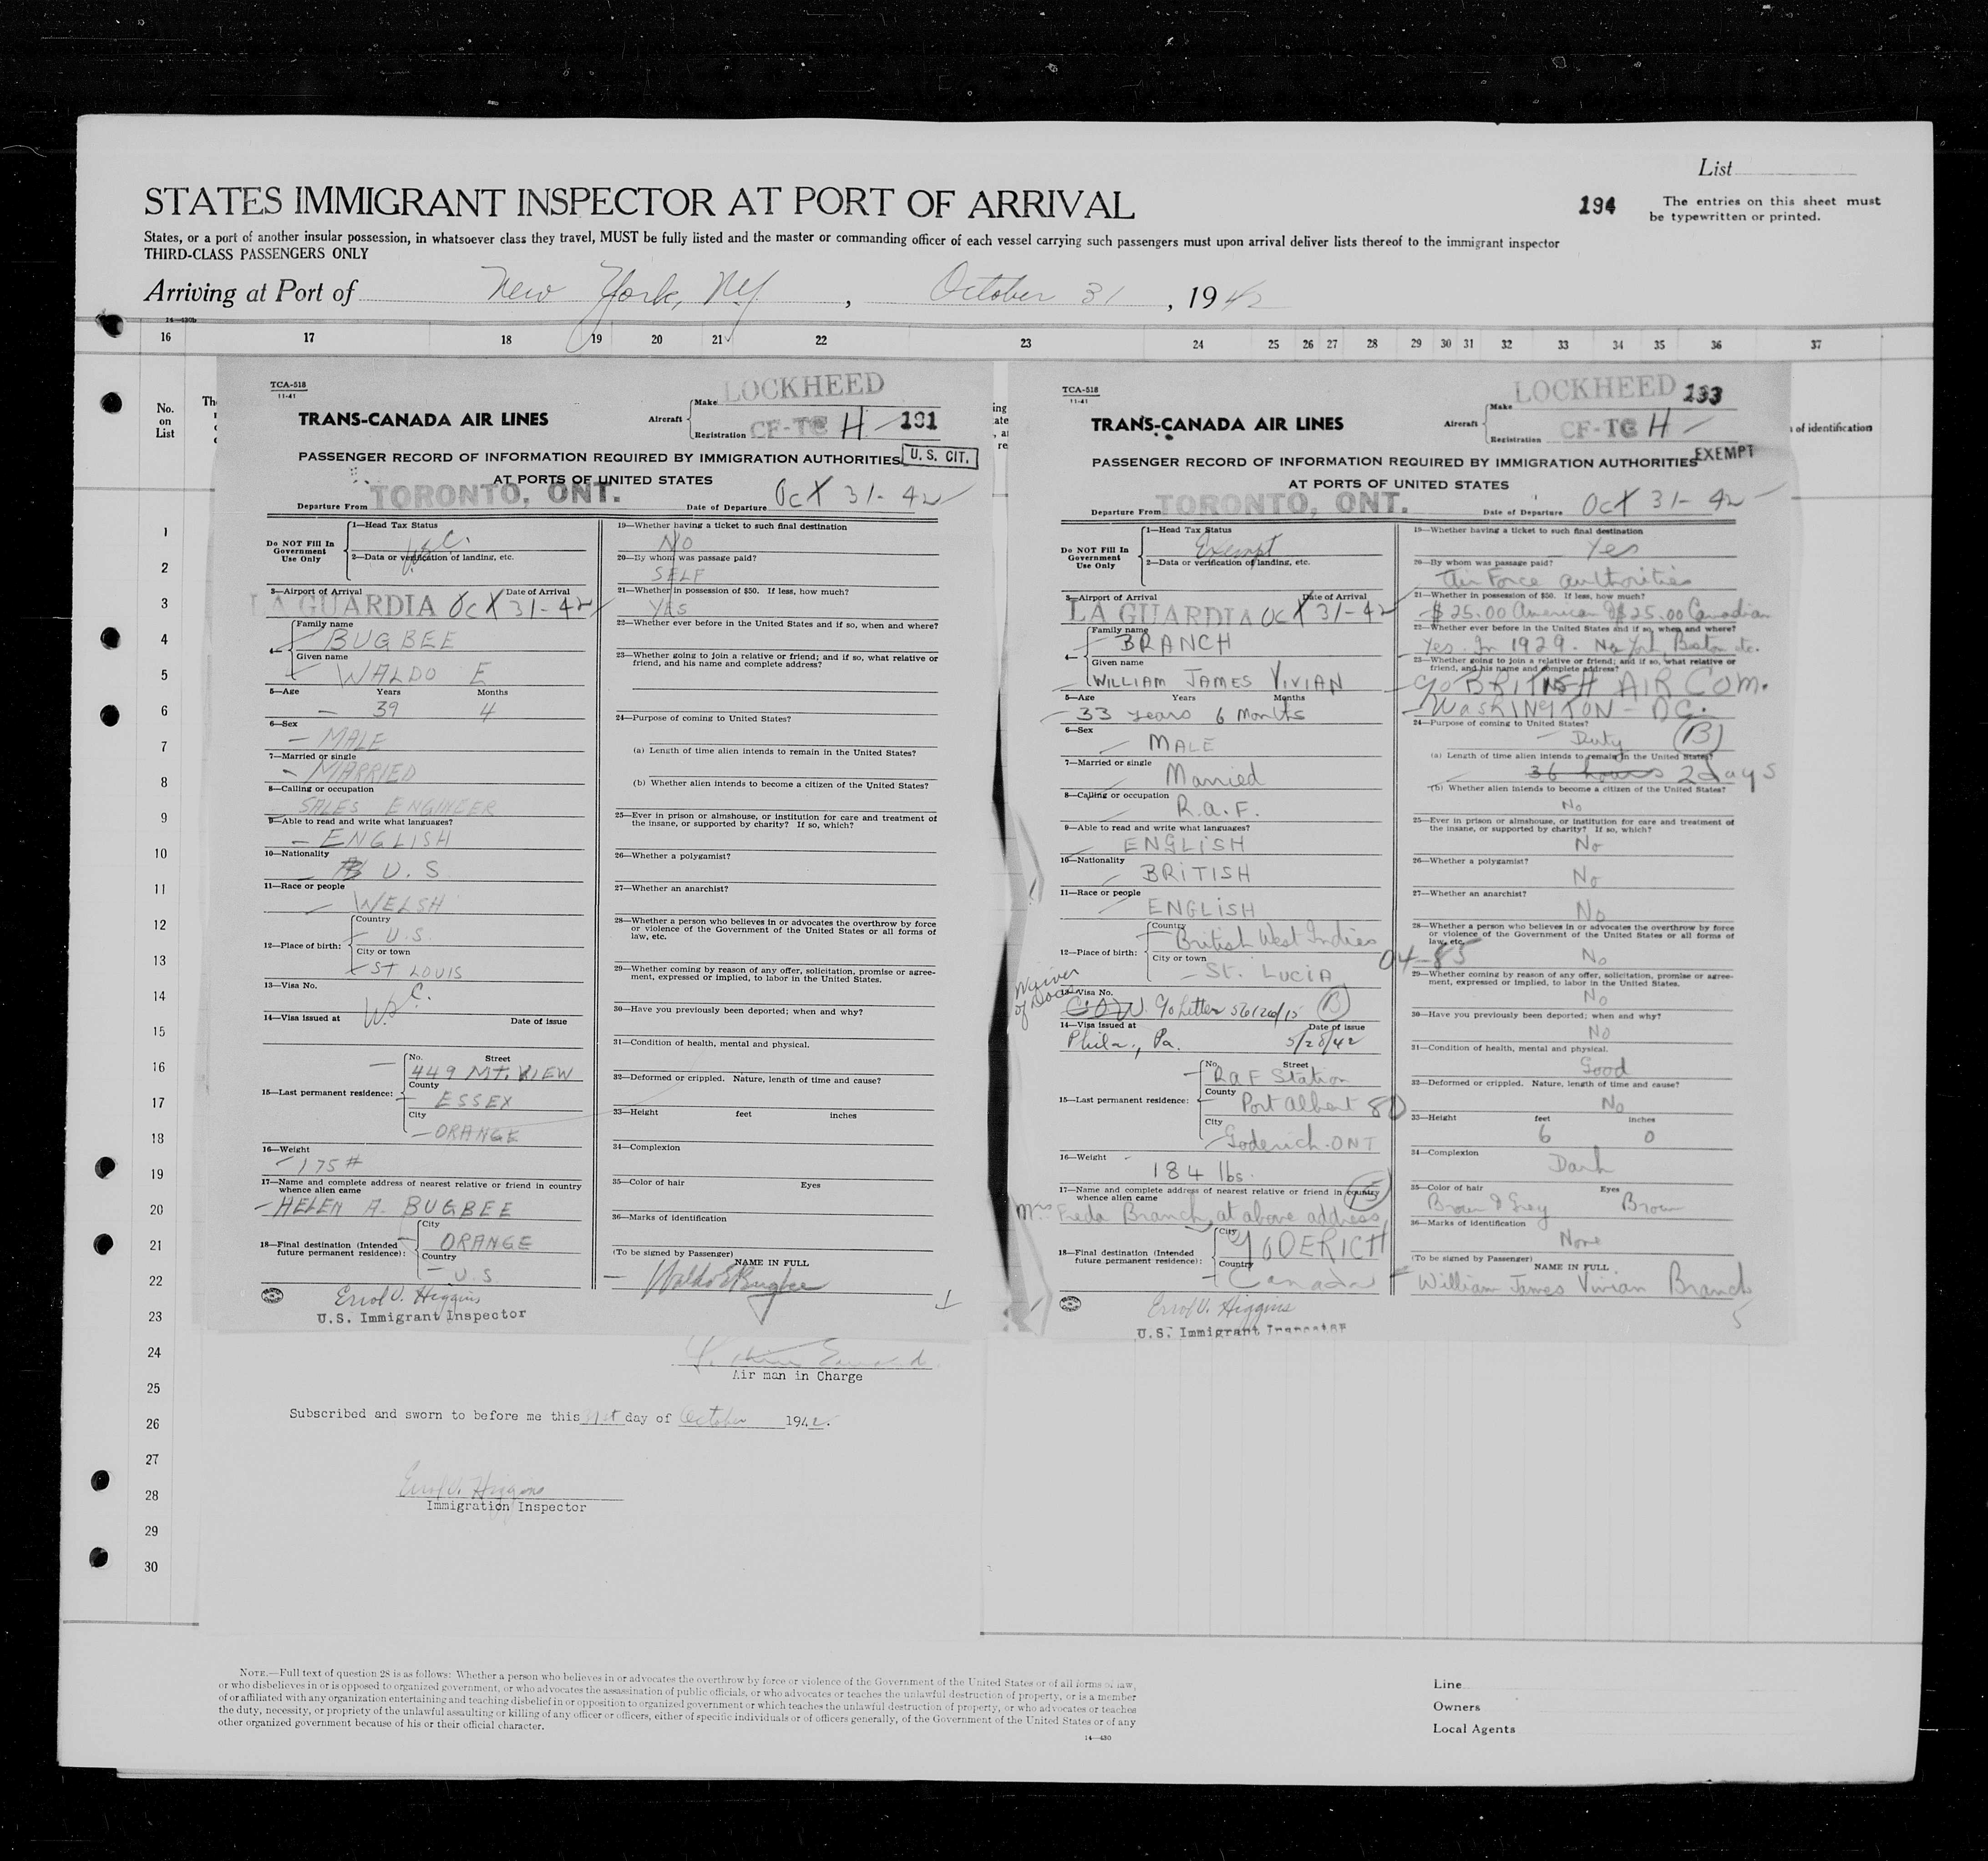 List
STATES IMMIGRANT INSPECTOR AT PORT OF ARRIVAL
194
The entries on this sheet must
be typewritten or printed.
States, or a port of another insular possession, in whatsoever class they travel, MUST be fully listed and the master or commanding officer of each vessel carrying such passengers must upon arrival deliver lists thereof to the immigrant inspector
THIRD-CLASS PASSENGERS ONLY
Arriving at Port of New York, NY, October 31, 1942
14—430b
16 17 18 19 20 21 22 23 24 25 26 27 28 29 30 31 32 33 34 35 36 37
No.
on
List
of identification
TCA-518
11-41
TRANS-CANADA AIR LINES
Aircraft
Make LOCKHEED
Registration CF-TC H 191
PASSENGER RECORD OF INFORMATION REQUIRED BY IMMIGRATION AUTHORITIES U. S. CIT.
AT PORTS OF UNITED STATES
Departure From TORONTO, ONT. Date of Departure Oct 31-42
Do NOT Fill In
Government
Use Only
1—Head Tax Status
2—Data or verification of landing, etc.
3—Airport of Arrival Date of Arrival
LA GUARDIA Oct 31-42
4—
Family name
BUGBEE
Given name
WALDO E
5—Age Years Months
39 4
6—Sex
MALE
7—Married or single
MARRIED
8—Calling or occupation
SALES ENGINEER
9—Able to read and write what languages?
ENGLISH
10—Nationality
U. S
11—Race or people
WELSH
12—Place of birth:
Country
U.S.
City or town
ST LOUIS
13—Visa No.
14—Visa issued at Date of issue
15—Last permanent residence:
No. Street
449 MT. VIEW
County
ESSEX
City
ORANGE
16—Weight
175#
17—Name and complete address of nearest relative or friend in country
whence alien came
HELEN A. BUGBEE
18—Final destination (Intended
future permanent residence):
City
ORANGE
Country
U.S.
Errol V. Higgins
U.S. Immigrant Inspector
19—Whether having a ticket to such final destination
NO
20—By whom was passage paid?
SELF
21—Whether in possession of $50. If less, how much?
YES
22—Whether ever before in the United States and if so, when and where?
23—Whether going to join a relative or friend; and if so, what relative or
friend, and his name and complete address?
24—Purpose of coming to United States?
(a) Length of time alien intends to remain in the United States?
(b) Whether alien intends to become a citizen of the United States?
25—Ever in prison or almshouse, or institution for care and treatment of
the insane, or supported by charity? If so, which?
26—Whether a polygamist?
27—Whether an anarchist?
28—Whether a person who believes in or advocates the overthrow by force
or violence of the Government of the United States or all forms of
law, etc.
29—Whether coming by reason of any offer, solicitation, promise or agree-
ment, expressed or implied, to labor in the United States.
30—Have you previously been deported; when and why?
31—Condition of health, mental and physical.
32—Deformed or crippled. Nature, length of time and cause?
33—Height feet inches
34—Complexion
35—Color of hair Eyes
36—Marks of identification
(To be signed by Passenger)
NAME IN FULL
Waldo E Bugbee
TCA-518
11-41
TRANS-CANADA AIR LINES
Aircraft
Make LOCKHEED 193
Registration CF-TC H
PASSENGER RECORD OF INFORMATION REQUIRED BY IMMIGRATION AUTHORITIES EXEMPT
AT PORTS OF UNITED STATES
Departure From TORONTO, ONT. Date of Departure Oct 31-42
Do NOT Fill In
Government
Use Only
1—Head Tax Status
Exempt
2—Data or verification of landing, etc.
3—Airport of Arrival Date of Arrival
LA GUARDIA Oct 31-42
4—
Family name
BRANCH
Given name
WILLIAM JAMES VIVIAN
5—Age Years Months
33 years 6 Months
6—Sex
MALE
7—Married or single
Married
8—Calling or occupation
R.A.F.
9—Able to read and write what languages?
ENGLISH
10—Nationality
BRITISH
11—Race or people
ENGLISH
12—Place of birth:
Country
British West Indies
City or town
St. LUCIA
04-85
Waiver
of Docs
13—Visa No.
c/o Letter 56120/15 (B)
14—Visa issued at Date of issue
Phila., Pa. 5/28/42
15—Last permanent residence:
No. Street
RAF Station
County
Port Albert 80
City
Goderich. ONT
16—Weight
184 lbs.
17—Name and complete address of nearest relative or friend in country
whence alien came
Mrs Freda Branch, at above address
18—Final destination (Intended
future permanent residence):
City
GODERICH
Country
Canada
Errol V. Higgins
U.S. Immigrant Inspector
19—Whether having a ticket to such final destination
Yes
20—By whom was passage paid?
Air Force authorities
21—Whether in possession of $50. If less, how much?
$25.00 American & $25.00 Canadian
22—Whether ever before in the United States and if so, when and where?
Yes. In 1929. New York, Boston etc.
23—Whether going to join a relative or friend; and if so, what relative or
friend, and his name and complete address?
c/o BRITISH AIR COM.
WASHINGTON - DC.
24—Purpose of coming to United States?
Duty (B)
(a) Length of time alien intends to remain in the United States?
36 hours 2 days
(b) Whether alien intends to become a citizen of the United States?
No
25—Ever in prison or almshouse, or institution for care and treatment of
the insane, or supported by charity? If so, which?
No
26—Whether a polygamist?
No
27—Whether an anarchist?
No
28—Whether a person who believes in or advocates the overthrow by force
or violence of the Government of the United States or all forms of
law, etc.
No
29—Whether coming by reason of any offer, solicitation, promise or agree-
ment, expressed or implied, to labor in the United States.
No
30—Have you previously been deported; when and why?
No
31—Condition of health, mental and physical.
Good
32—Deformed or crippled. Nature, length of time and cause?
No
33—Height feet inches
6 0
34—Complexion
Dark
35—Color of hair Eyes
Brown & Grey Brown
36—Marks of identification
None
(To be signed by Passenger)
NAME IN FULL
William James Vivian Branch
1
2
3
4
5
6
7
8
9
10
11
12
13
14
15
16
17
18
19
20
21
22
23
24
25
26
27
28
29
30
Air man in Charge
Subscribed and sworn to before me this 31st day of October 1942.
Errol V. Higgins
Immigration Inspector
NOTE.—Full text of question 28 is as follows: Whether a person who believes in or advocates the overthrow by force or violence of the Government of the United States or of all forms of law,
or who disbelieves in or is opposed to organized government, or who advocates the assassination of public officials, or who advocates or teaches the unlawful destruction of property, or is a member
of or affiliated with any organization entertaining and teaching disbelief in or opposition to organized government or which teaches the unlawful destruction of property, or who advocates or teaches
the duty, necessity, or propriety of the unlawful assaulting or killing of any officer or officers, either of specific individuals or of officers generally, of the Government of the United States or of any
other organized government because of his or their official character.
14—430
Line
Owners
Local Agents